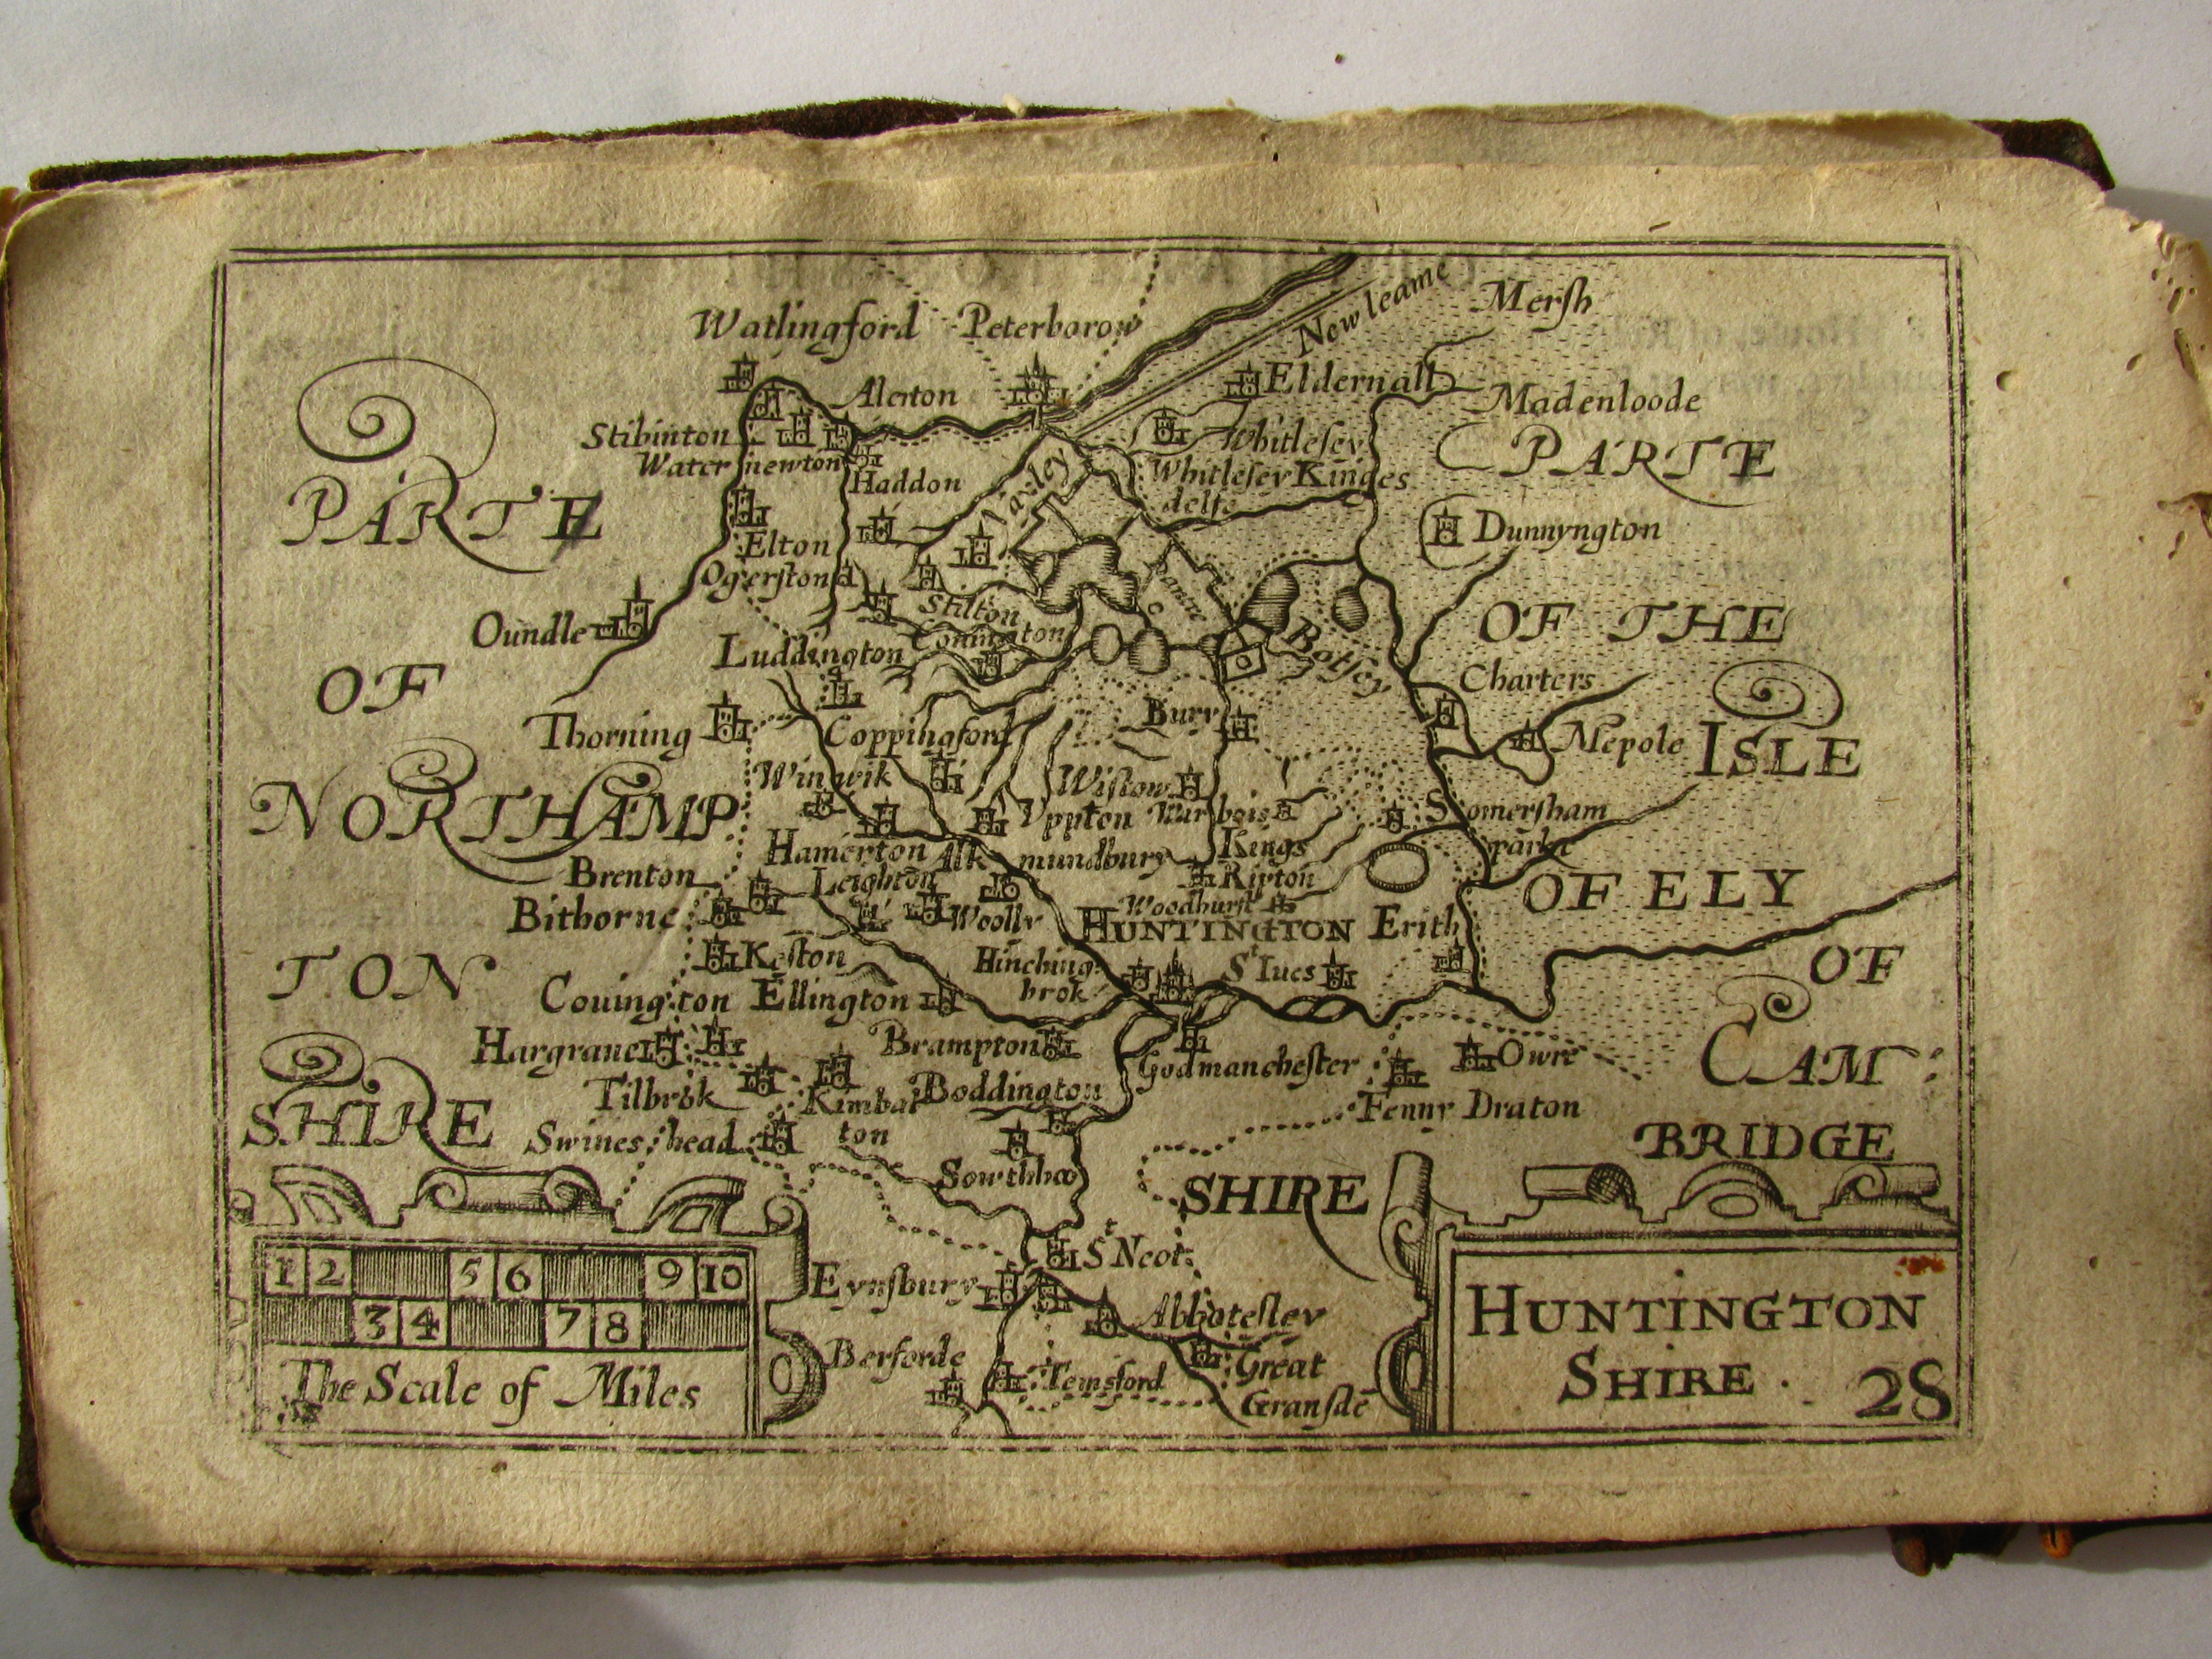 New leame
Merſh
Watlingford
Peterborow
Alerton
Eldernall
Madenloode
Stibinton
Whitleſey
PARTE
Water newton
Haddon
Whitleſey Kinges
delfe
PARTE
Yaxley
Dunnyngton
Elton
Ogerſton
Stilton
Ramsey
OF THE
Oundle
Conington
Luddington
Botſey
Charters
OF
Thorning
Coppingford
Bury
Mepole
ISLE
Winwik
Wiſtow
NORTHAMP
Uppton
Warbois
Somerſham
parke
Hamerton
Alk mundbury
Kings
Ripton
Brenton
Leighton
OF ELY
Bithorne
Woolly
Woodhurſt
HUNTINGTON
Erith
Keſton
Hinching
brok
St Iues
OF
TON
Couington
Ellington
Hargraue
Brampton
Godmancheſter
Owre
CAM:
Tilbrok
Kimbal
ton
Boddington
Fenny Draton
SHIRE
Swineshead
BRIDGE
Sowthho
SHIRE
St Neot
Eynſbury
Abboteſley
Berforde
Temsford
Great
Granſde
1 2 5 6 9 10
3 4 7 8
The Scale of Miles
HUNTINGTON
SHIRE . 28